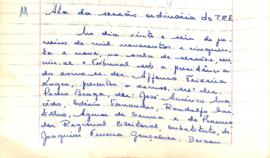 Ata da sessão ordinária do T.R.E.
No dia vinte e seis de ja-
neiro de mil novecentos e cinquen-
ta e nove, na sala de sessões, reu-
niu-se o Tribunal sob a presidência
do exmo. sr. des. Affonso Teixeira
Lages, presentes os exmos. srs. des.
Pedro Braga, drs. José Américo Ma-
cêdo, Edésio Fernandes,
e o Procura-
dor Regional Eleitoral, substituto, dr.
Joaquim Ferreira Gonçalves. Deixou